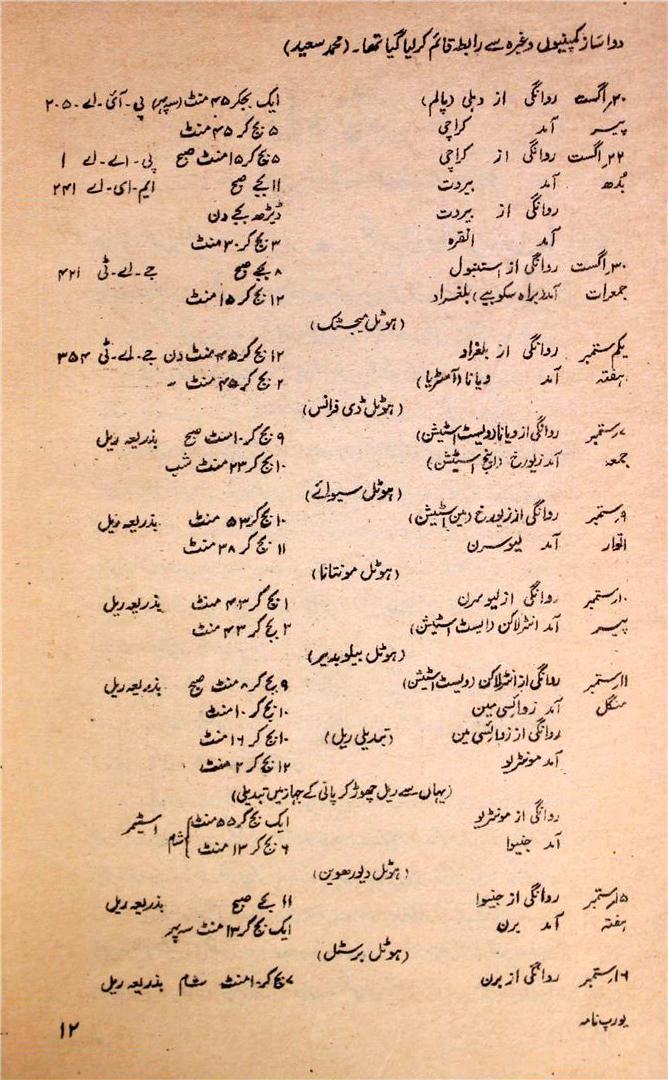 دوا ساز کمپنیوں وغیرہ سے رابطہ قائم کر لیا گیا تھا۔ (محمد سعید)
۲۰؍اگست روانگی از دہلی (پالم) ایک بجکر ۴۵ منٹ (سہ پہر) پی۔آئی۔اے۔ ۲۰۵
پیر آمد کراچی ۵ بج کر ۴۵ منٹ
۲۲؍اگست روانگی از کراچی ۵ بج کر ۱۵ منٹ صبح پی۔اے۔اے ۱
بُدھ آمد بیروت ۱۱ بجے صبح ایم۔ای۔اے ۲۴۱
روانگی از بیروت ڈیڑھ بجے دن
آمد انقرہ ۳ بج کر ۳۰ منٹ
۳۰؍اگست روانگی از استنبول ۸ بجے صبح جے۔اے۔ٹی ۴۲۱
جمعرات آمد (براہ سکوپیے) بلغراد ۱۲ بج کر ۱۵ منٹ
(ہوٹل میجسٹک)
یکم ستمبر روانگی از بلغراد ۱۲ بج کر ۴۵ منٹ دن جے۔اے۔ٹی ۳۵۴
ہفتہ آمد ویانا (آسٹریا) ۲ بج کر ۴۵ منٹ "
(ہوٹل ڈی فرانس)
۷؍ستمبر روانگی از ویانا (ویسٹ اسٹیشن) ۹ بج کر ۱۰ منٹ صبح بذریعہ ریل
جمعہ آمد زیورخ (اینج اسٹیشن) ۱۰ بج کر ۲۳ منٹ شب
(ہوٹل سیوائے)
۹؍ستمبر روانگی از زیورخ (مین اسٹیشن) ۱۰ بج کر ۵۳ منٹ بذریعہ ریل
اتوار آمد لیوسرن ۱۱ بج کر ۳۸ منٹ
(ہوٹل مونتانا)
۱۰؍ستمبر روانگی از لیوسرن ۱ بج کر ۴۳ منٹ بذریعہ ریل
پیر آمد انٹرلاکن (ایسٹ اسٹیشن) ۳ بج کر ۴۳ منٹ
(ہوٹل بیلویدیر)
۱۱؍ستمبر روانگی از انٹرلاکن (ویسٹ اسٹیشن) ۹ بج کر ۸ منٹ صبح بذریعہ ریل
منگل آمد زوائسی مین ۱۰ بج کر ۱۰ منٹ
روانگی از زوائسی مین (تبدیلی ریل) ۱۰ بج کر ۱۶ منٹ
آمد مونٹریو ۱۲ بج کر ۲ منٹ
(یہاں سے ریل چھوڑ کر پانی کے جہاز میں تبدیلی)
روانگی از مونٹریو ایک بج کر ۵۵ منٹ اسٹیمر
آمد جنیوا ۶ بج کر ۱۳ منٹ شام
(ہوٹل دیورھوین)
۱۵؍ستمبر روانگی از جنیوا ۱۱ بجے صبح بذریعہ ریل
ہفتہ آمد برن ایک بج کر ۱۳ منٹ سہ پہر
(ہوٹل برسٹل)
۱۶؍ستمبر روانگی از برن ۷ بج کر ۱۰ منٹ شام بذریعہ ریل
یورپ نامہ ۱۲